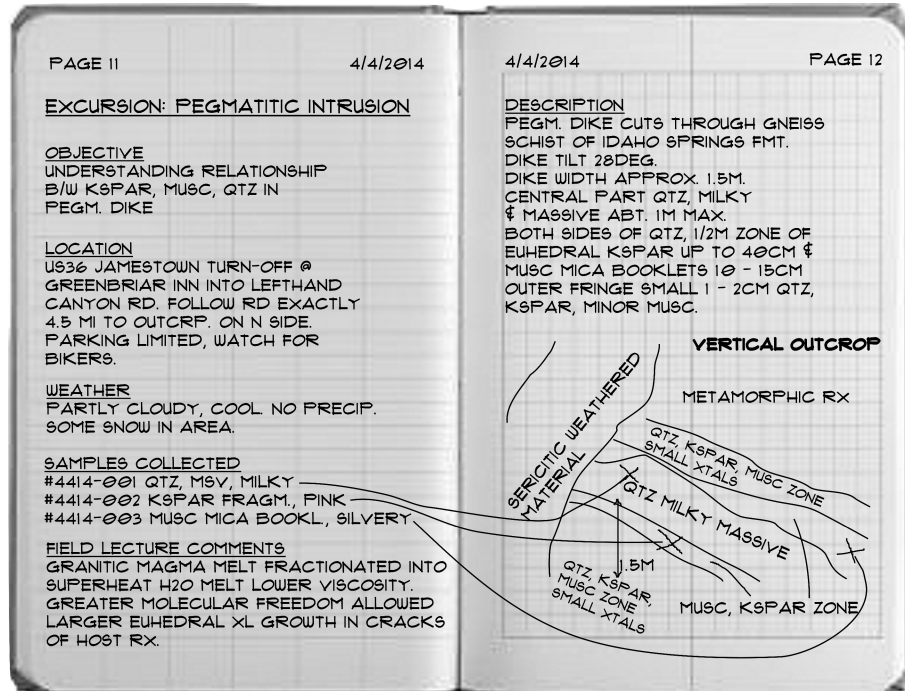 PAGE 11 4/4/2014
EXCURSION: PEGMATITIC INTRUSION
OBJECTIVE
UNDERSTANDING RELATIONSHIP
B/W KSPAR, MUSC, QTZ IN
PEGM. DIKE
LOCATION
US36 JAMESTOWN TURN-OFF @
GREENBRIAR INN INTO LEFTHAND
CANYON RD. FOLLOW RD EXACTLY
4.5 MI TO OUTCRP. ON N SIDE.
PARKING LIMITED, WATCH FOR
BIKERS.
WEATHER
PARTLY CLOUDY, COOL. NO PRECIP.
SOME SNOW IN AREA.
SAMPLES COLLECTED
#4414-001 QTZ, MSV, MILKY
#4414-002 KSPAR FRAGM., PINK
#4414-003 MUSC MICA BOOKL., SILVERY
FIELD LECTURE COMMENTS
GRANITIC MAGMA MELT FRACTIONATED INTO
SUPERHEAT H2O MELT LOWER VISCOSITY.
GREATER MOLECULAR FREEDOM ALLOWED
LARGER EUHEDRAL XL GROWTH IN CRACKS
OF HOST RX.
4/4/2014 PAGE 12
DESCRIPTION
PEGM. DIKE CUTS THROUGH GNEISS
SCHIST OF IDAHO SPRINGS FMT.
DIKE TILT 28DEG.
DIKE WIDTH APPROX. 1.5M.
CENTRAL PART QTZ, MILKY
& MASSIVE ABT. 1M MAX.
BOTH SIDES OF QTZ, 1/2M ZONE OF
EUHEDRAL KSPAR UP TO 40CM &
MUSC MICA BOOKLETS 10 - 15CM
OUTER FRINGE SMALL 1 - 2CM QTZ,
KSPAR, MINOR MUSC.
VERTICAL OUTCROP
METAMORPHIC RX
SERICITIC WEATHERED
MATERIAL
QTZ, KSPAR, MUSC ZONE
SMALL XTALS
QTZ MILKY MASSIVE
1.5M
QTZ, KSPAR,
MUSC ZONE
SMALL XTALS
MUSC, KSPAR ZONE